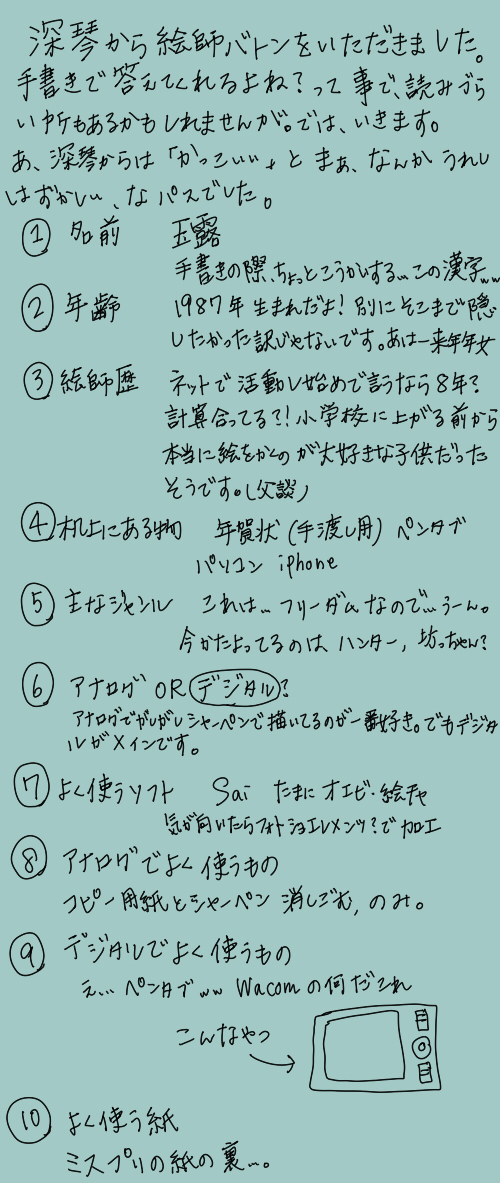 深琴から絵師バトンをいただきました。
手書きで答えてくれるよね?って事で、読みづら
い所もあるかもしれませんが。では、いきます。
あ、深琴からは「かっこいい」とまぁ、なんかうれし
はずかしい、なパスでした。
① 名前 玉露
手書きの際、ちょっとこうかいする…この漢字ww
② 年齢 1987年生まれだよ!別にそこまで隠
したかった訳じゃないです。あはー来年年女
③ 絵師歴 ネットで活動し始めで言うなら8年?
計算合ってる?!小学校に上がる前から
本当に絵をかくのが大好きな子供だった
そうです。(父談)
④ 机上にある物 年賀状(手渡し用) ペンタブ
パソコン iphone
⑤ 主なジャンル これは…フリーダムなので…うーん。
今かたよってるのはハンター, 坊っちゃん?
⑥ アナログ OR デジタル?
アナログでがしがしシャーペンで描いてるのが一番好き。でもデジタ
ルがメインです。
⑦ よく使うソフト Sai たまにオエビ・絵チャ
気が向いたらフォトショエレメンツ?で加工
⑧ アナログでよく使うもの
コピー用紙とシャーペン 消しごむ, のみ。
⑨ デジタルでよく使うもの
え… ペンタブww Wacomの何だこれ
こんなやつ
⑩ よく使う紙
ミスプリの紙の裏…。